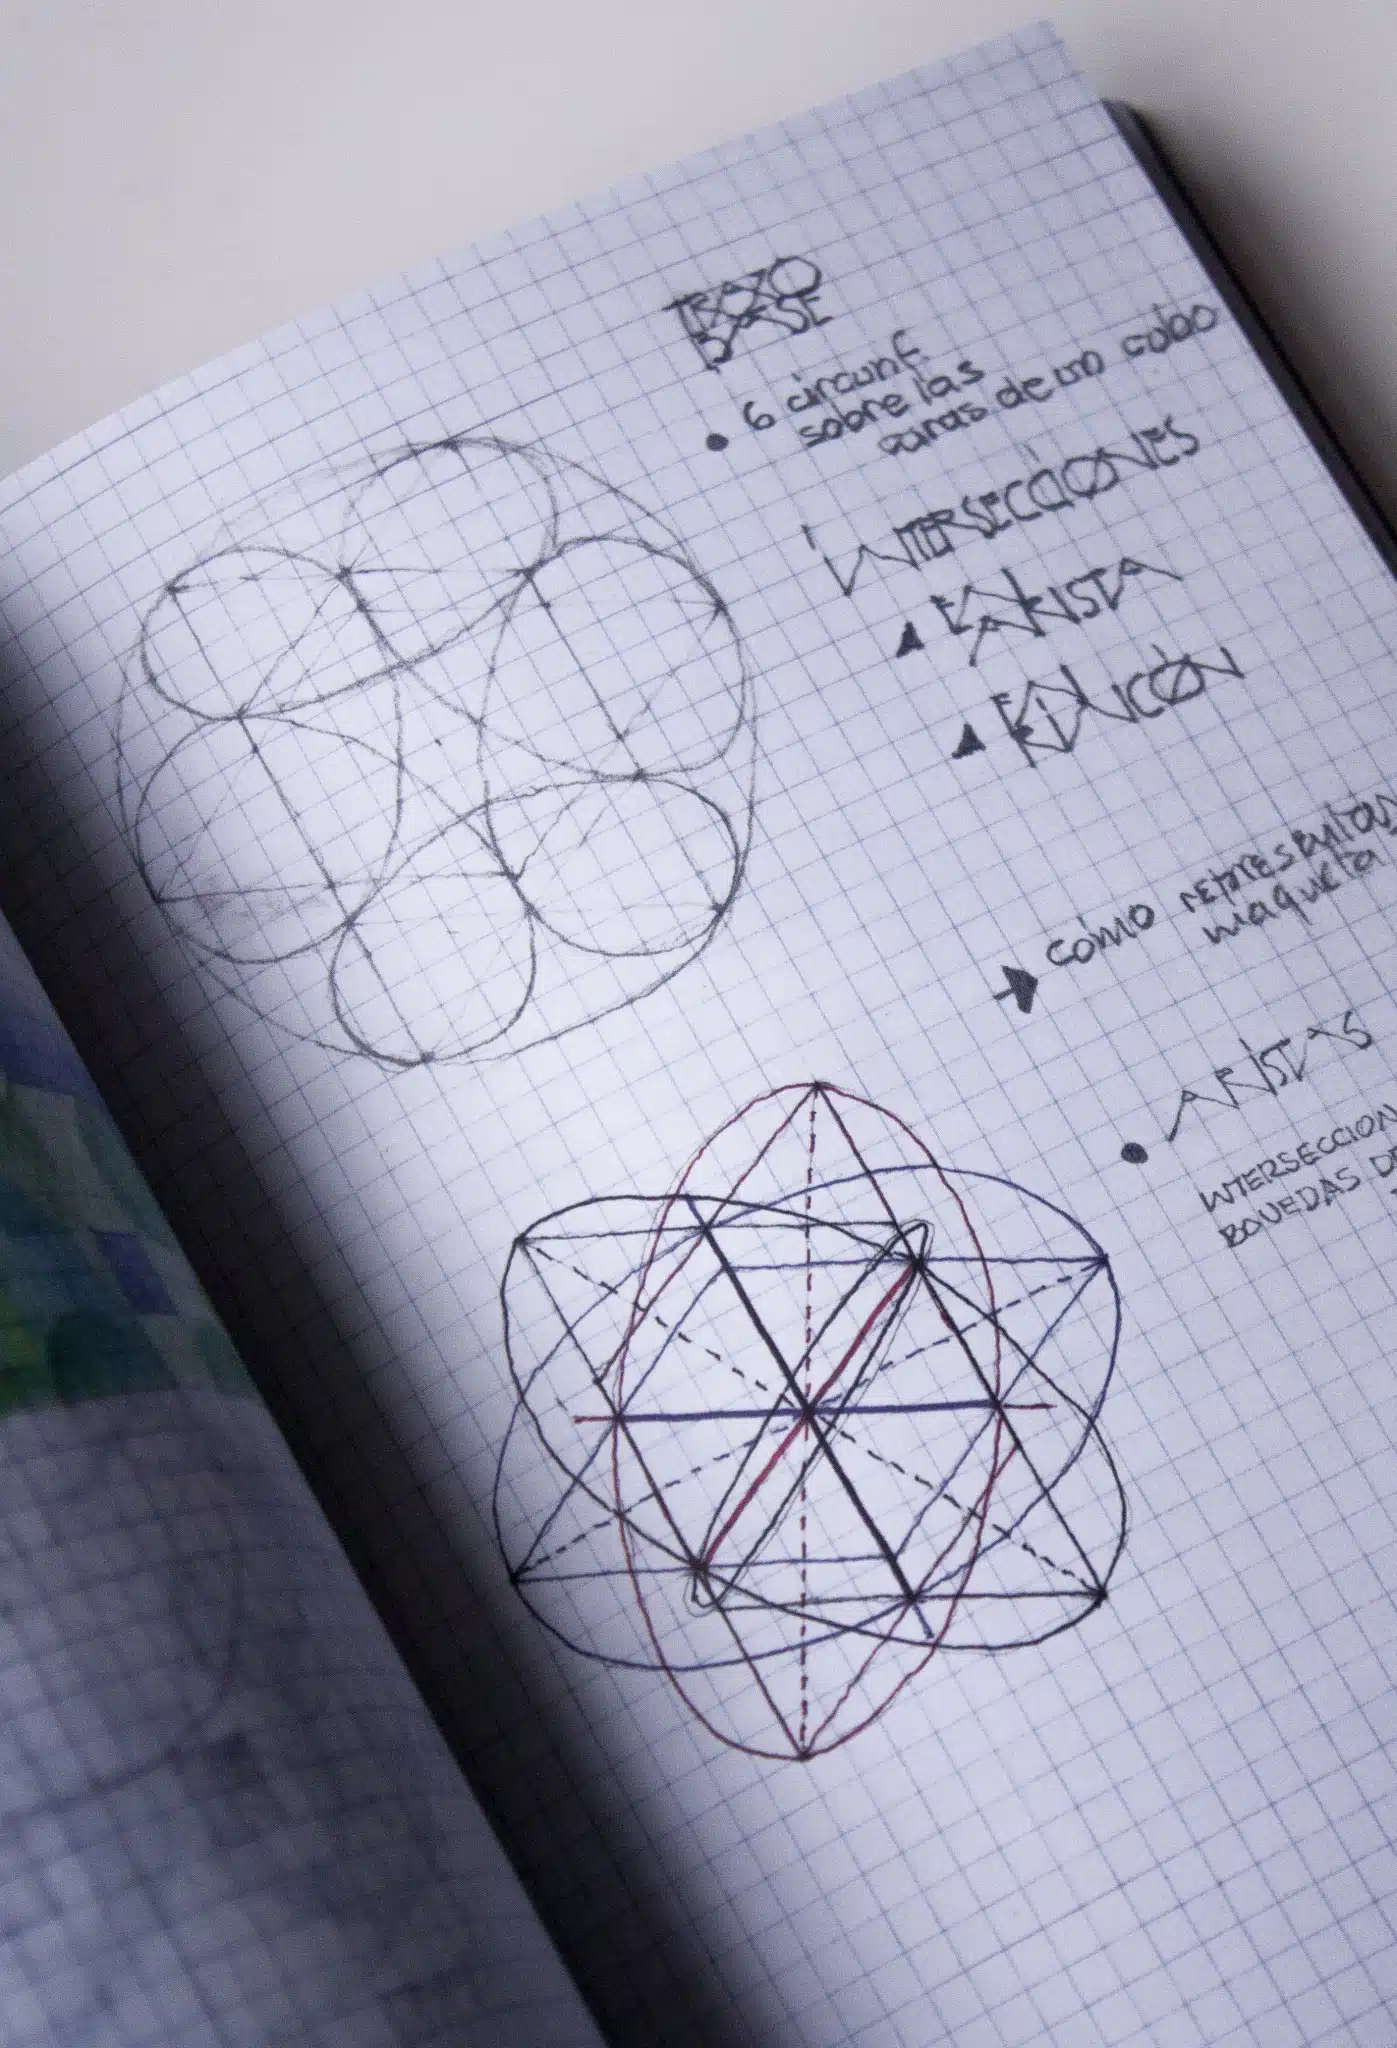 TRAZO
BASE
• 6 circunf.
sobre las
caras de un cubo
INTERSECCIONES
▲ EN ARISTA
▲ EN RINCÓN
→ cómo representar
maqueta
• ARISTAS
INTERSECCION
BOVEDAS DE